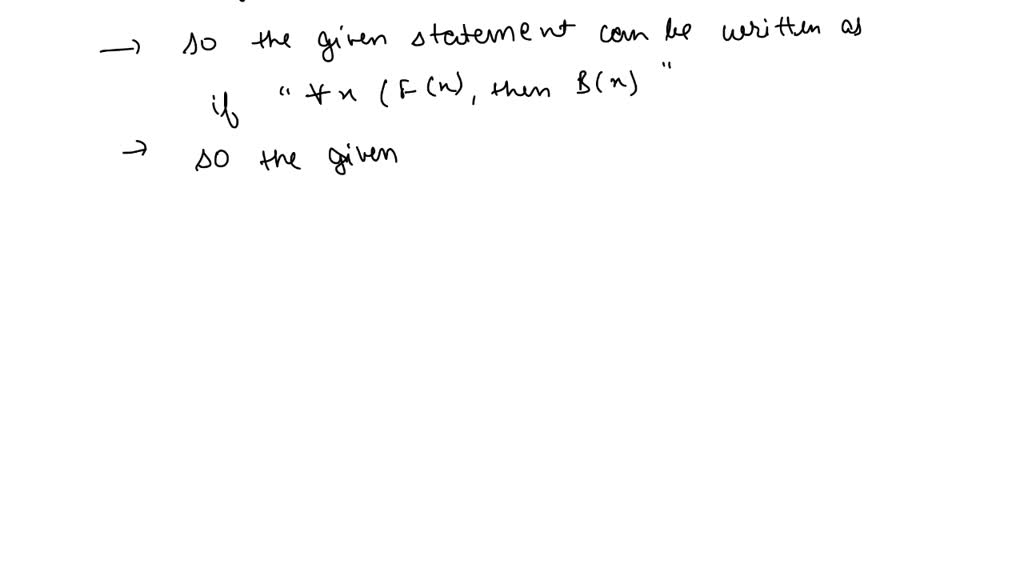 → so the given statement can be written as
if " ∀x (F(x), then B(x) "
→ so the given